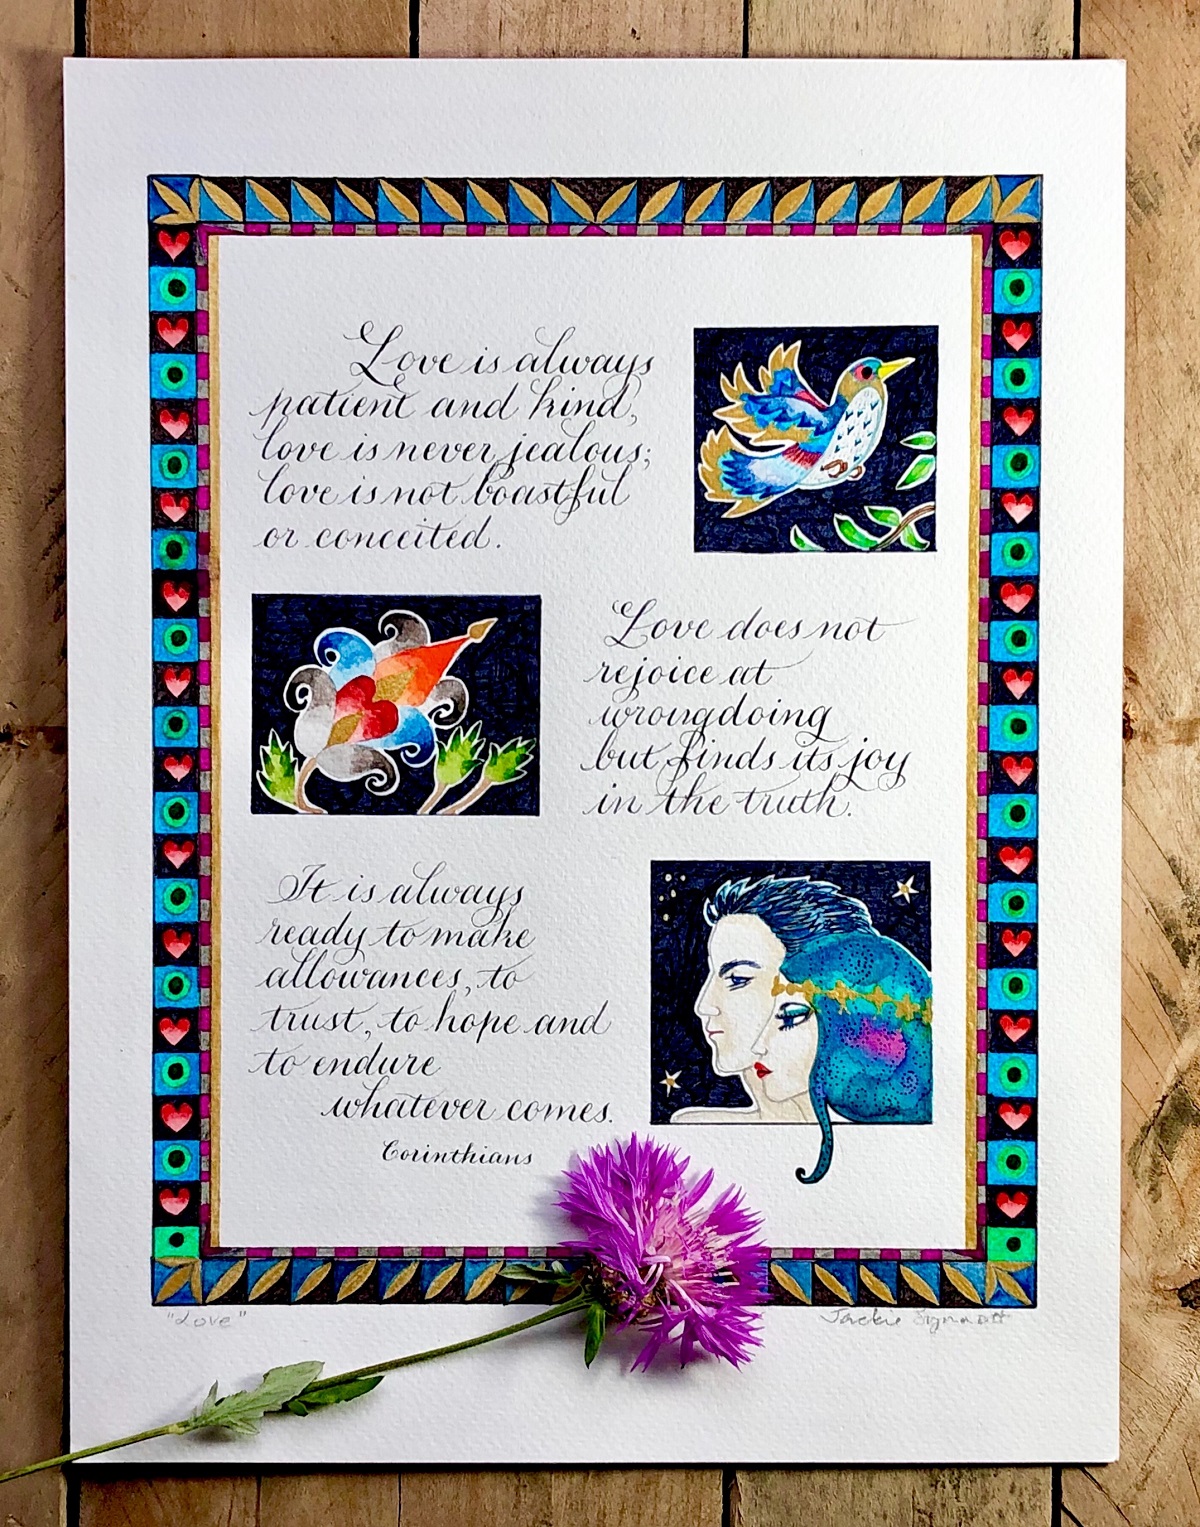 Love is always
patient and kind,
love is never jealous;
love is not boastful
or conceited.
Love does not
rejoice at
wrongdoing
but finds its joy
in the truth.
It is always
ready to make
allowances, to
trust, to hope and
to endure
whatever comes.
Corinthians
"Love"
Jackie